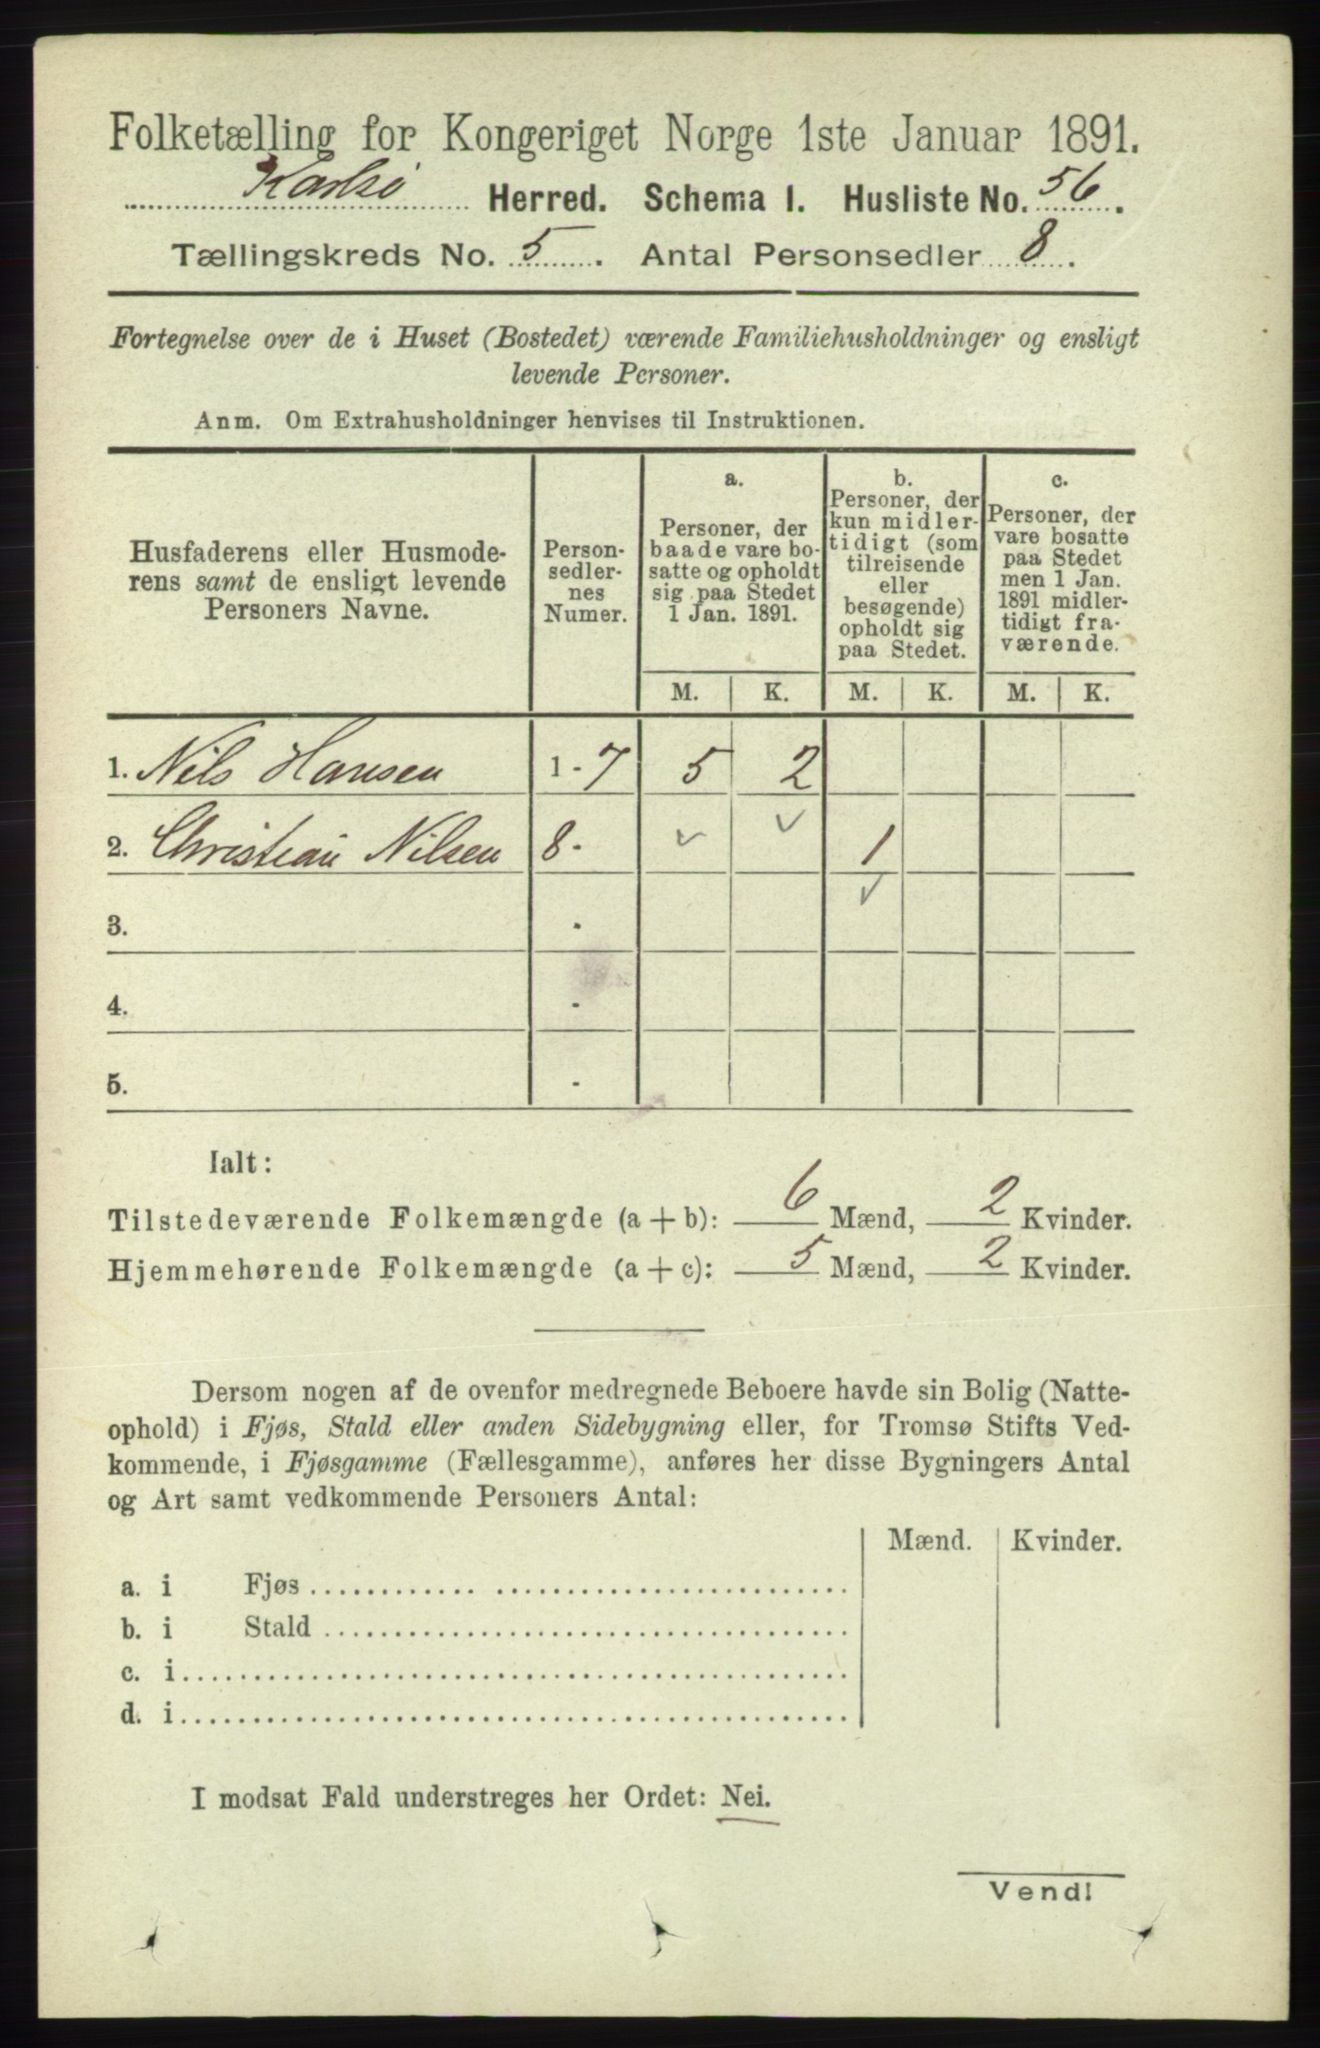 Folketælling for Kongeriget Norge 1ste Januar 1891.
Karlsø Herred. Schema I. Husliste No. 56.
Tællingskreds No. 5. Antal Personsedler 8.
Fortegnelse over de i Huset (Bostedet) værende Familiehusholdninger og ensligt
levende Personer.
Anm. Om Extrahusholdninger henvises til Instruktionen.
Husfaderens eller Husmode-
rens samt de ensligt levende
Personers Navne.
Person-
sedler-
nes
Numer.
a.
Personer, der
baade vare bo-
satte og opholdt
sig paa Stedet
1 Jan. 1891.
b.
Personer, der
kun midler-
tidigt (som
tilreisende
eller
besøgende)
opholdt sig
paa Stedet.
c.
Personer, der
vare bosatte
paa Stedet
men 1 Jan.
1891 midler-
tidigt fra-
værende.
M. K. M. K. M. K.
1. Nils Hansen 1 - 7 5 2
2. Christian Nilsen 8 - 1
3. -
4. -
5. -
Ialt:
Tilstedeværende Folkemængde (a + b): 6 Mænd, 2 Kvinder.
Hjemmehørende Folkemængde (a + c): 5 Mænd, 2 Kvinder.
Dersom nogen af de ovenfor medregnede Beboere havde sin Bolig (Natte-
ophold) i Fjøs, Stald eller anden Sidebygning eller, for Tromsø Stifts Ved-
kommende, i Fjøsgamme (Fællesgamme), anføres her disse Bygningers Antal
og Art samt vedkommende Personers Antal:
Mænd. Kvinder.
a. i Fjøs
b. i Stald
c. i
d. i
I modsat Fald understreges her Ordet: Nei.
Vend!